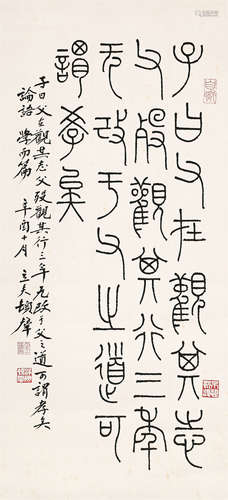 子曰父在觀其志
父歿觀其行三年
无改于父之道可
謂孝矣
子曰父在觀其志父歿觀其行三年无改于父之道可謂孝矣
論語學而篇 辛酉十月 立夫